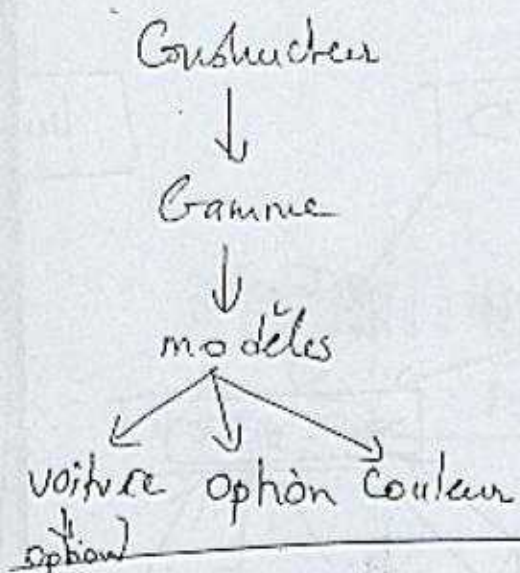 Constructeur
Gamme
modèles
voiture option Couleur
option